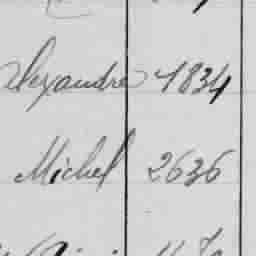 alexandre 1834
Michel 2636